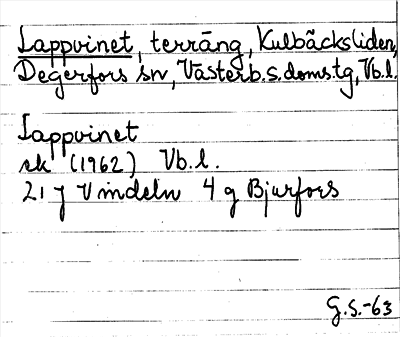 Lappvinet, terräng, Kulbäcksliden,
Degerfors sn, Västerb.s.doms.tg, Vb.l.
Lappvinet
ek (1962) Vb.l.
21 J Vindeln 4 g Bjurfors
G.S.-63